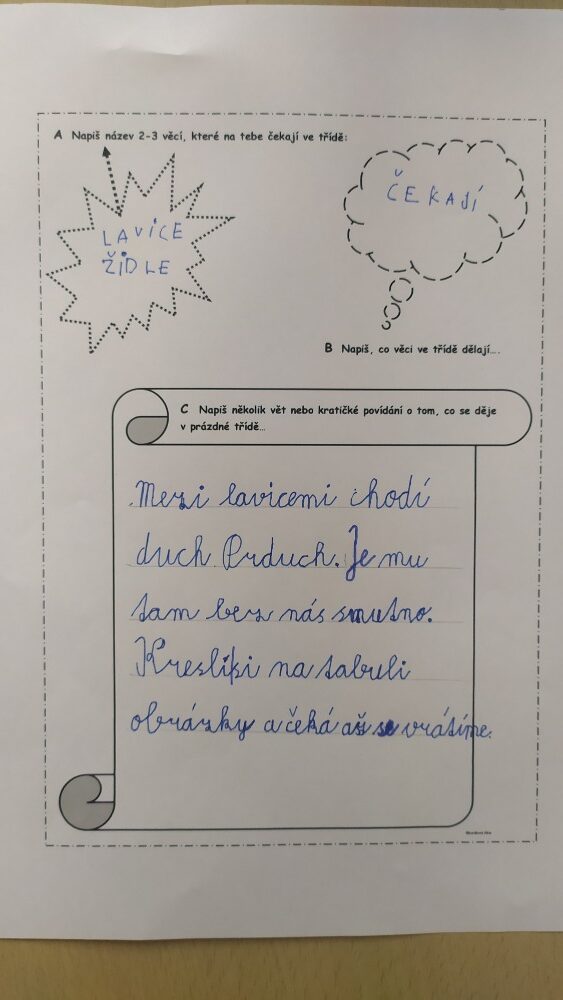 A Napiš název 2-3 věcí, které na tebe čekají ve třídě:
LAVICE
ŽIDLE
ČEKAJÍ
B Napiš, co věci ve třídě dělají….
C Napiš několik vět nebo kratičké povídání o tom, co se děje
v prázdné třídě…
Mezi lavicemi chodí
duch Prduch. Je mu
tam bez nás smutno.
Kreslí si na tabuli
obrázky a čeká až se vrátíme.